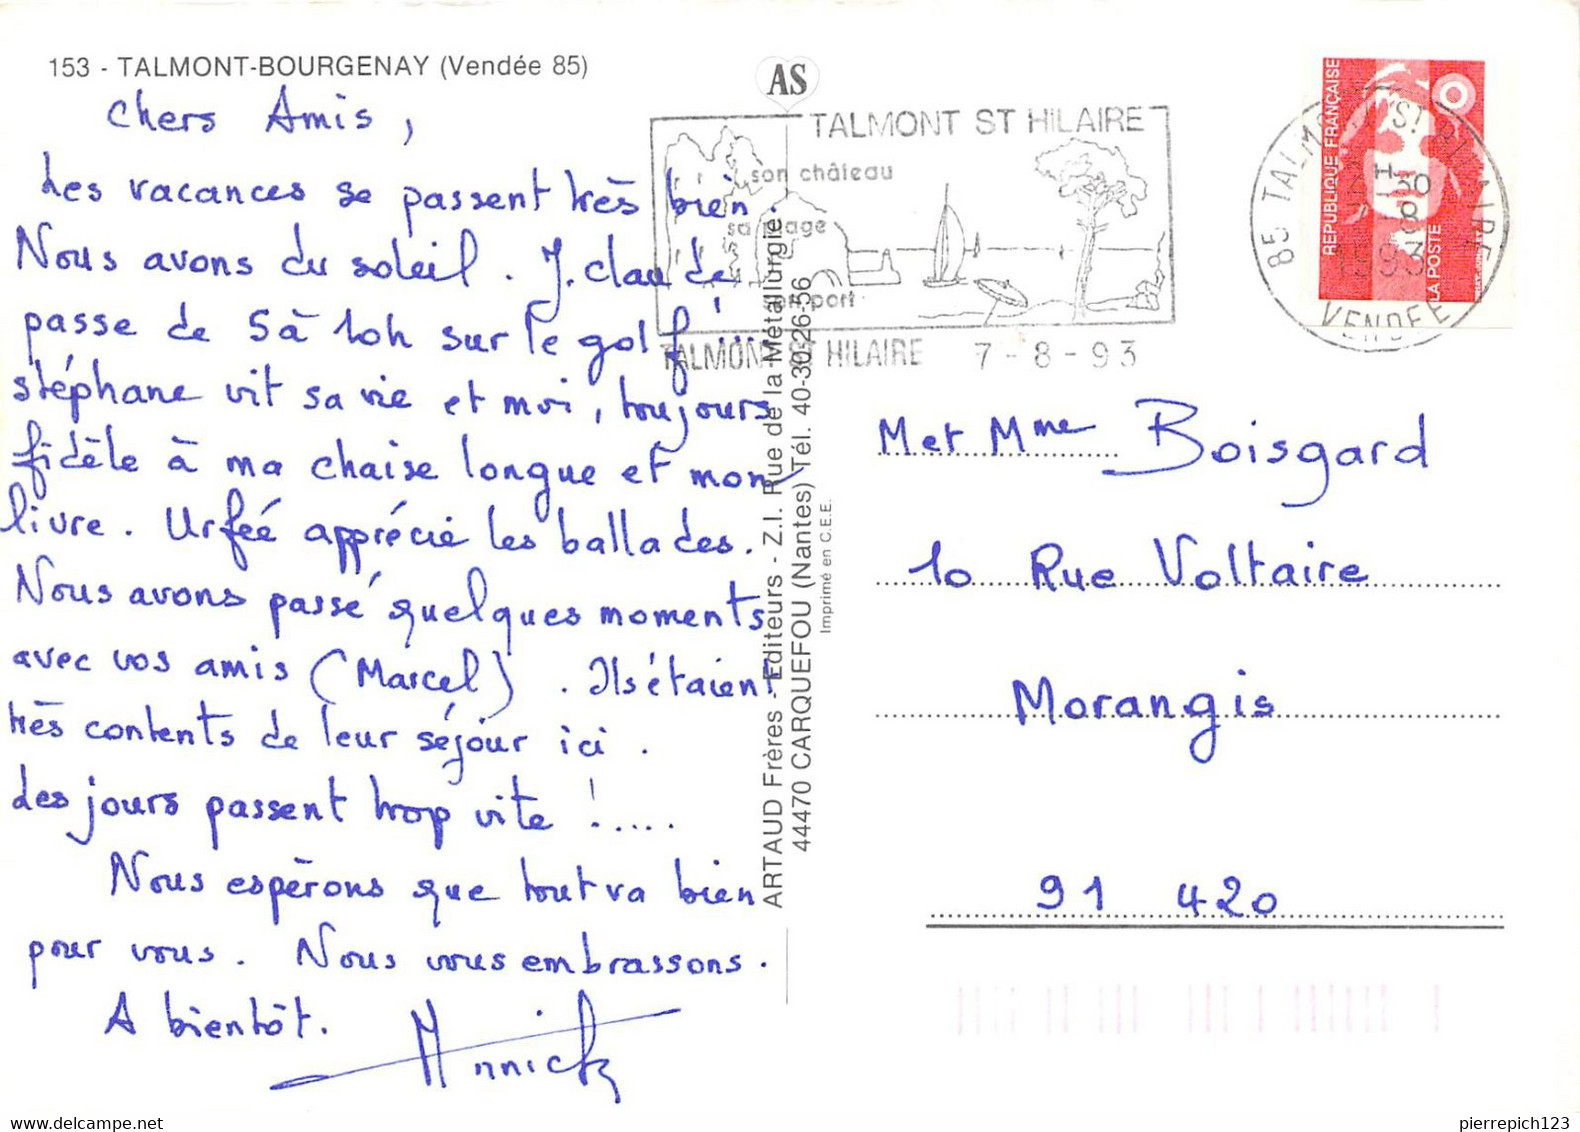 153 - TALMONT-BOURGENAY (Vendée 85)
Chers Amis,
Les vacances se passent très bien.
Nous avons du soleil. J. claude
passe de 5 à 10h sur le golf !...
stéphane vit sa vie et moi, toujours
fidèle à ma chaise longue et mon
livre. Urfeé apprécie les ballades.
Nous avons passé quelques moments
avec vos amis (Marcel). Ils étaient
très contents de leur séjour ici.
des jours passent trop vite !.....
Nous espèrons que tout va bien
pour vous. Nous vous embrassons.
A bientôt. Annick
AS
ARTAUD Frères - Editeurs - Z.I. Rue de la Métallurgie
44470 CARQUEFOU (Nantes) Tél. 40-30-26-56
Imprimé en C.E.E.
TALMONT ST HILAIRE
son château
sa plage
son port
TALMONT ST HILAIRE 7-8-93
85 TALMONT ST HILAIRE
VENDEE
REPUBLIQUE FRANÇAISE
LA POSTE
M et Mme Boisgard
10 Rue Voltaire
Morangis
91 420
pierrepich123